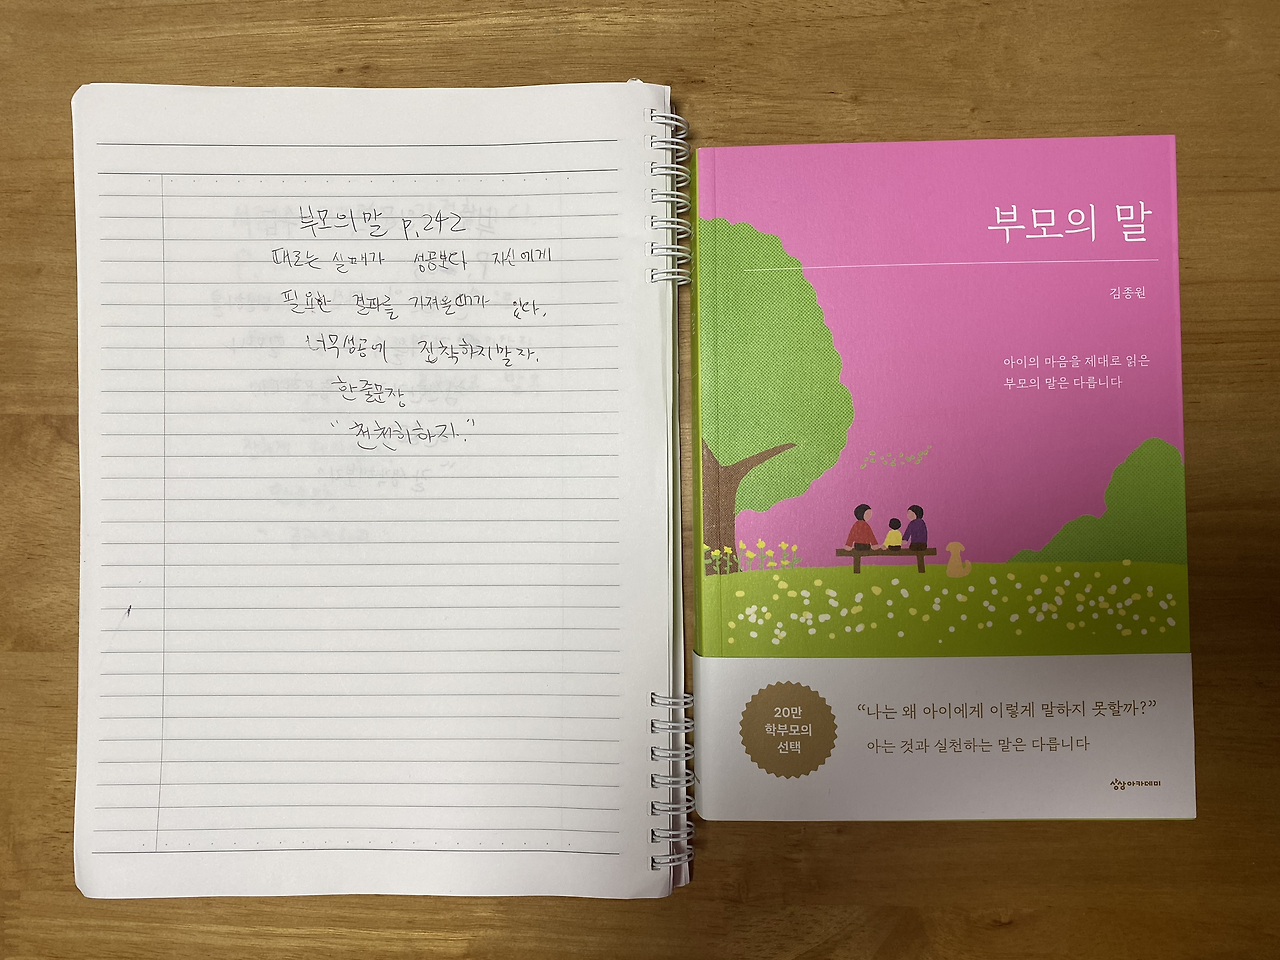 부모의 말 p.242
때로는 실패가 성공보다 자신에게
필요한 결과를 가져올때가 있다.
너무성공에 집착하지말자.
한줄문장
"천천히하자."
부모의 말
김종원
아이의 마음을 제대로 읽은
부모의 말은 다릅니다
20만
학부모의
선택
“나는 왜 아이에게 이렇게 말하지 못할까?”
아는 것과 실천하는 말은 다릅니다
상상아카데미